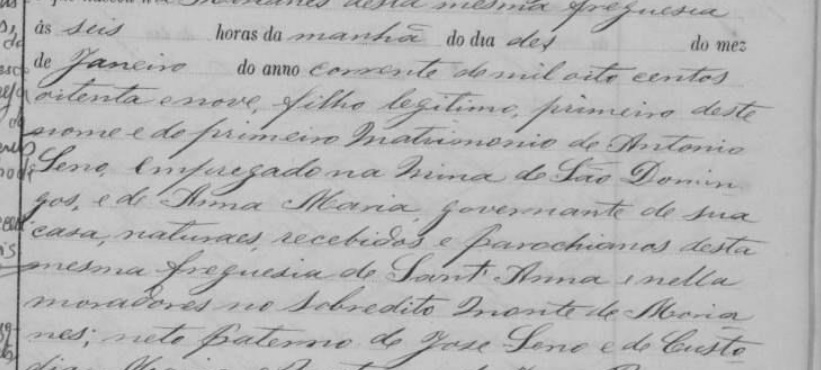 Marianes desta mesma freguesia
ás seis horas da manhã do dia dez do mez
de Janeiro do anno corrente de mil oito centos
oitenta e nove, filho legitimo, primeiro deste
nome e do primeiro Matrimonio de Antonio
Leno, empregado na Mina de São Domin
gos, e de Anna Maria, governante de sua
casa, naturaes, recebidos e parochianos desta
mesma freguesia de Sant'Anna e nella
moradores no sobredito Monte de Maria
nes; neto paterno de José Leno e de Custo